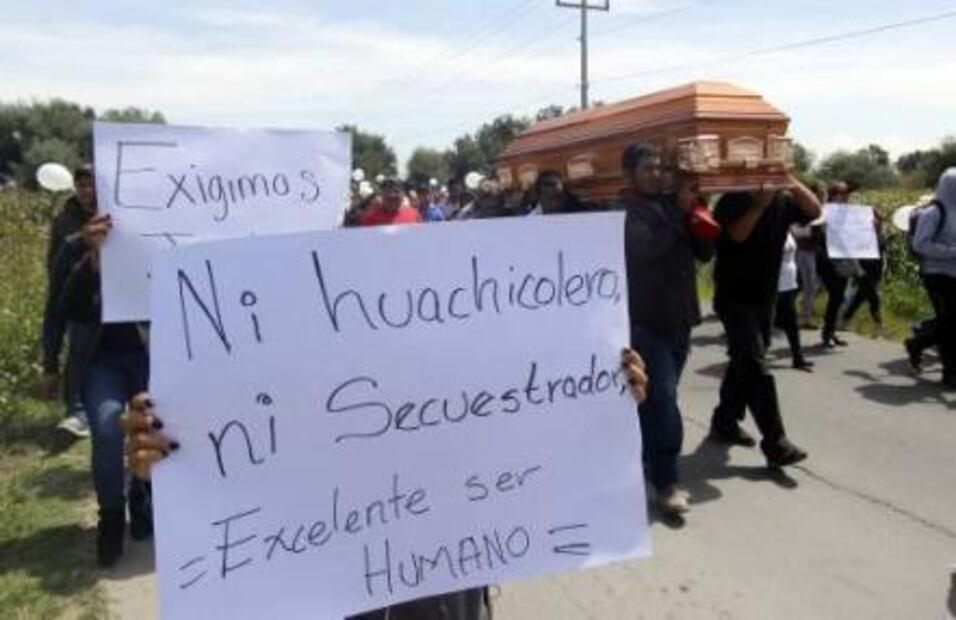 Exigimos
Ni huachicolero,
ni Secuestrador,
=Excelente ser
HUMANO=